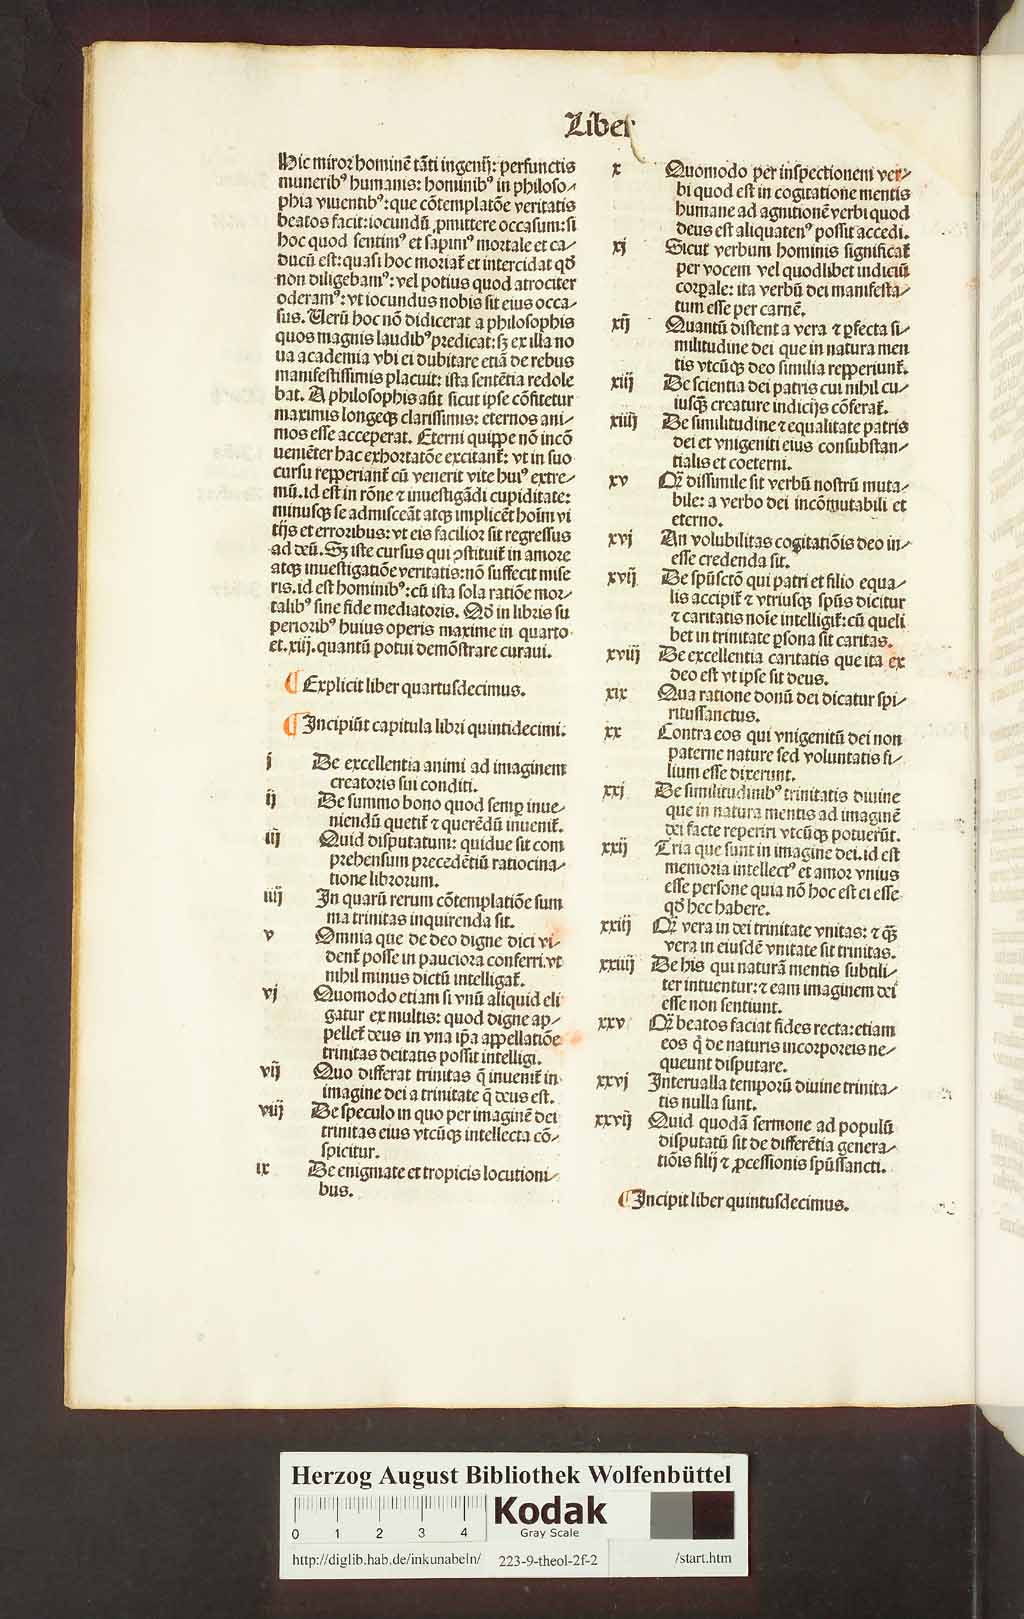 Liber
Hic miror hominē tāti ingenij: perfunctis
muneribꝰ humanis: hominibꝰ in philoso⸗
phia viuentibꝰ: que cōtemplatōe veritatis
beatos facit: iocundū ꝓmittere occasum: si
hoc quod sentimꝰ et sapimꝰ mortale et ca⸗
ducū est: quasi hoc moriat᷑ et intercidat qd̄
non diligebamꝰ: vel potius quod atrociter
oderamꝰ: vt iocundus nobis sit eius occa⸗
sus. Uerū hoc nō didicerat a philosophis
quos magnis laudibꝰ predicat: sꝫ ex illa no
ua academia vbi ei dubitare etiā de rebus
manifestissimis placuit: ista sentētia redole
bat. A philosophis aūt sicut ipse cōfitetur
maximis longeqꝫ clarissimis: eternos ani⸗
mos esse acceperat. Eterni quippe nō incō
ueniēter hac exhortatōe excitant᷑: vt in suo
cursu repperiant᷑ cū venerit vite huiꝰ extre⸗
mū. id est in rōne ⁊ inuestigādi cupiditate:
minusqꝫ se admisceāt atqꝫ implicēt hoīm vi
tijs et erroribus: vt eis facilior sit regressus
ad deū. Sꝫ iste cursus qui ꝯstituit᷑ in amore
atqꝫ inuestigatiōe veritatis: nō suffecit mise
ris. id est hominibꝰ: cū ista sola ratiōe mor⸗
talibꝰ sine fide mediatoris. Qd̄ in libris su
perioribꝰ huius operis maxime in quarto
et .xiij. quantū potui demōstrare curaui.
¶ Explicit liber quartusdecimus.
¶ Incipiūt capitula libri quintidecimi.
j De excellentia animi ad imaginem
creatoris sui conditi.
ij De summo bono quod semꝑ inue⸗
niendū querit᷑ ⁊ querēdū inuenit᷑.
iij Quid disputatum: quidue sit com
prehensum precedētiū ratiocina⸗
tione librorum.
iiij In quarū rerum cōtemplatiōe sum
ma trinitas inquirenda sit.
v Omnia que de deo digne dici vi⸗
dent᷑ posse in pauciora conferri. vt
nihil minus dictū intelligat᷑.
vj Quomodo etiam si vnū aliquid eli
gatur ex multis: quod digne ap⸗
pellet᷑ deus in vna ip̄a appellatiōe
trinitas deitatis possit intelligi.
vij Quo differat trinitas q̄ inuenit᷑ in
imagine dei a trinitate q̄ deus est.
viij De speculo in quo per imaginē dei
trinitas eius vtcūqꝫ intellecta cō⸗
spicitur.
ix De enigmate et tropicis locutioni⸗
bus.
x Quomodo per inspectionem ver⸗
bi quod est in cogitatione mentis
humane ad agnitionē verbi quod
deus est aliquatenꝰ possit accedi.
xj Sicut verbum hominis significat᷑
per vocem vel quodlibet indiciū
corꝑale: ita verbū dei manifesta⸗
tum esse per carnē.
xij Quantū distent a vera ⁊ ꝑfecta si⸗
militudine dei que in natura men
tis vtcūqꝫ deo similia repperiunt᷑.
xiij De scientia dei patris cui nihil cu⸗
iusqꝫ creature indicijs cōferat᷑.
xiiij De similitudine ⁊ equalitate patris
dei et vnigeniti eius consubstan⸗
tialis et coeterni.
xv Qꝛ dissimile sit verbū nostrū muta⸗
bile: a verbo dei incōmutabili et
eterno.
xvj An volubilitas cogitatiōis deo in⸗
esse credenda sit.
xvij De spūsctō qui patri et filio equa⸗
lis accipit᷑ ⁊ vtriusqꝫ spūs dicitur
⁊ caritatis noīe intelligit᷑: cū queli
bet in trinitate ꝑsona sit caritas.
xviij De excellentia caritatis que ita ex
deo est vt ipse sit deus.
xix Qua ratione donū dei dicatur spi⸗
ritussanctus.
xx Contra eos qui vnigenitū dei non
paterne nature sed voluntatis fi⸗
lium esse dixerunt.
xxj De similitudinibꝰ trinitatis diuine
que in natura mentis ad imaginē
dei facte reperiri vtcūqꝫ potuerūt.
xxij Tria que sunt in imagine dei. id est
memoria intellectꝰ et amor vnius
esse persone quia nō hoc est ei esse
qd̄ hec habere.
xxiij Qꝛ vera in dei trinitate vnitas: ⁊ qꝫ
vera in eiusdē vnitate sit trinitas.
xxiiij De his qui naturā mentis subtili⸗
ter intuentur: ⁊ eam imaginem dei
esse non sentiunt.
xxv Qꝛ beatos faciat fides recta: etiam
eos q̄ de naturis incorporeis ne⸗
queunt disputare.
xxvj Interualla temporū diuine trinita⸗
tis nulla sunt.
xxvij Quid quodā sermone ad populū
disputatū sit de differētia genera⸗
tiōis filij ⁊ ꝓcessionis spūssancti.
¶ Incipit liber quintusdecimus.
Herzog August Bibliothek Wolfenbüttel
0 1 2 3 4
Kodak
Gray Scale
http://diglib.hab.de/inkunabeln/ 223-9-theol-2f-2 /start.htm